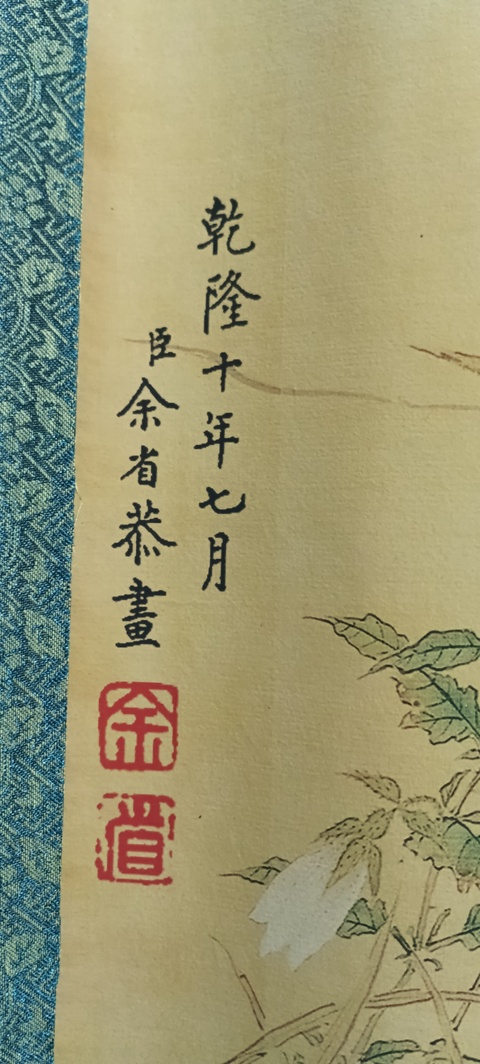 乾隆十年七月
臣余省恭畫
余
省